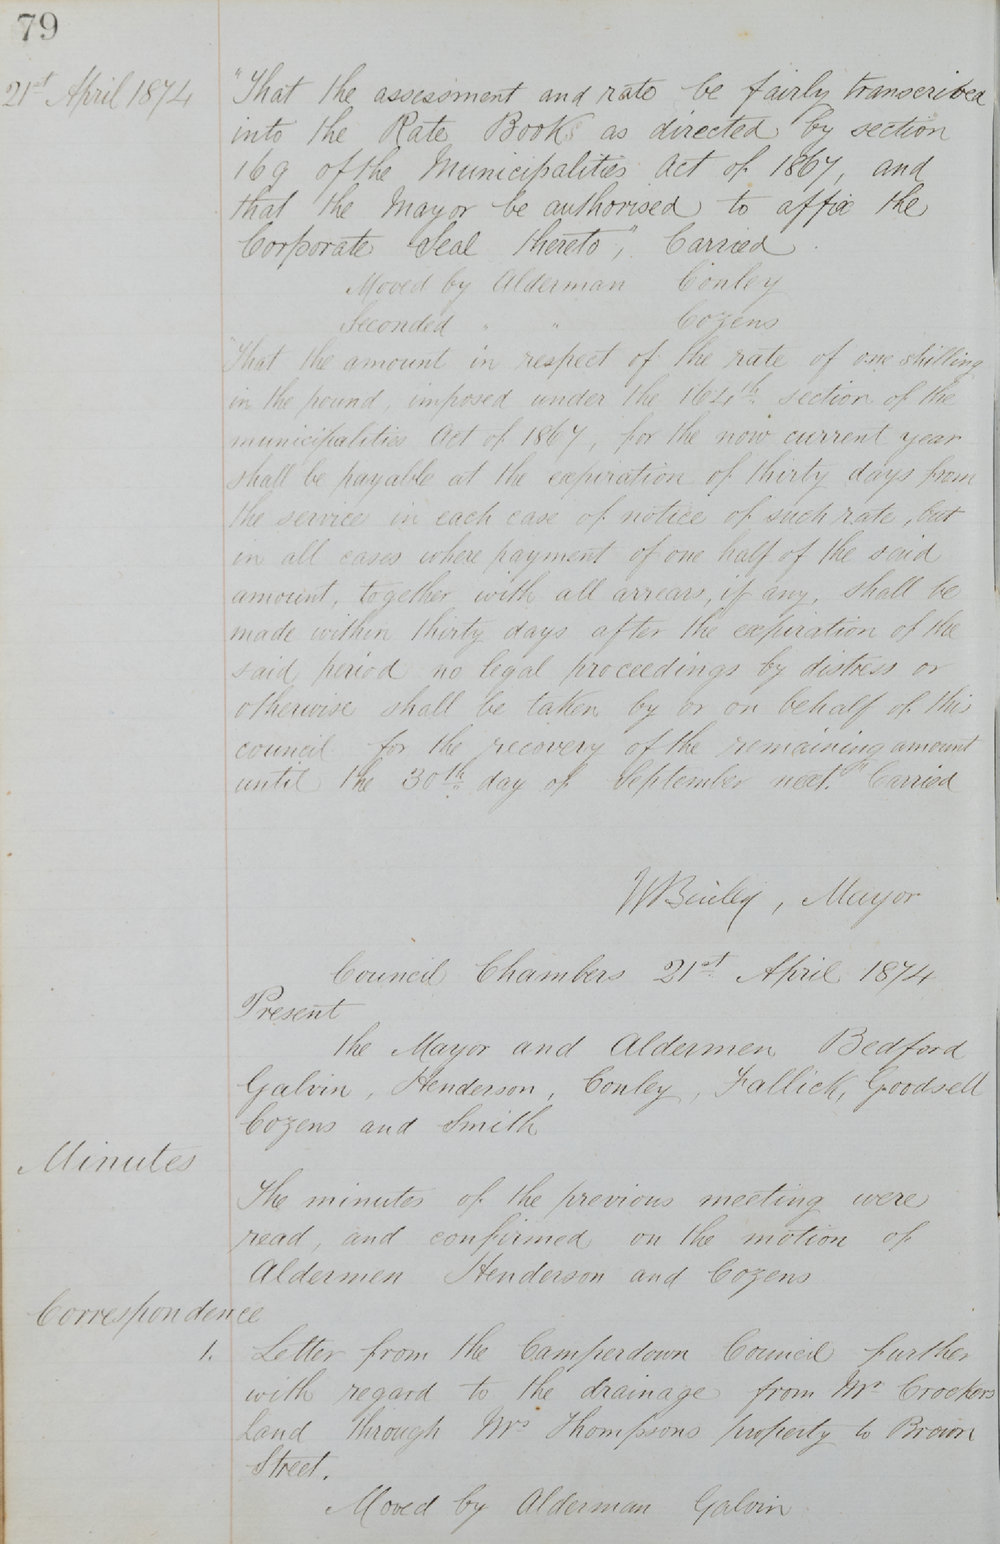 79
21st April 1874
"That the assessment and rate be fairly transcribed
into the Rate Books as directed by section
169 of the Municipalities Act of 1867, and
that the Mayor be authorised to affix the
Corporate Seal thereto", Carried.
Moved by Alderman Conley
Seconded " " Cozens
"That the amount in respect of the rate of one shilling
in the pound, imposed under the 164th section of the
municipalities Act of 1867, for the now current year
shall be payable at the expiration of thirty days from
the service in each case of notice of such rate, but
in all cases where payment of one half of the said
amount, together with all arrears, if any, shall be
made within thirty days after the expiration of the
said period no legal proceedings by distress or
otherwise shall be taken by or on behalf of this
council for the recovery of the remaining amount
until the 30th day of September next." Carried
Mayor
Council Chambers 21st April 1874
Present
the Mayor and Aldermen Bedford
Galvin, Henderson, Conley, Fallick, Goodsell
Cozens and Smith
Minutes
The minutes of the previous meeting were
read, and confirmed on the motion of
Aldermen Henderson and Cozens
Correspondence
1. Letter from the Camperdown Council further
with regard to the drainage from Mr Crookers
land through Mrs Thompsons property to Brown
Street.
Moved by Alderman Galvin